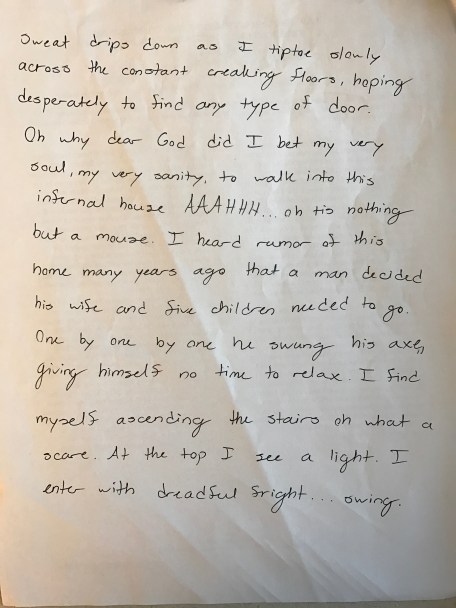 Sweat drips down as I tiptoe slowly
across the constant creaking floors, hoping
desperately to find any type of door.
Oh why dear God did I bet my very
soul, my very sanity, to walk into this
infernal house AAAHHH... oh tis nothing
but a mouse. I heard rumor of this
home many years ago that a man decided
his wife and five children needed to go.
One by one by one he swung his axe,
giving himself no time to relax. I find
myself ascending the stairs oh what a
scare. At the top I see a light. I
enter with dreadful fright... swing.